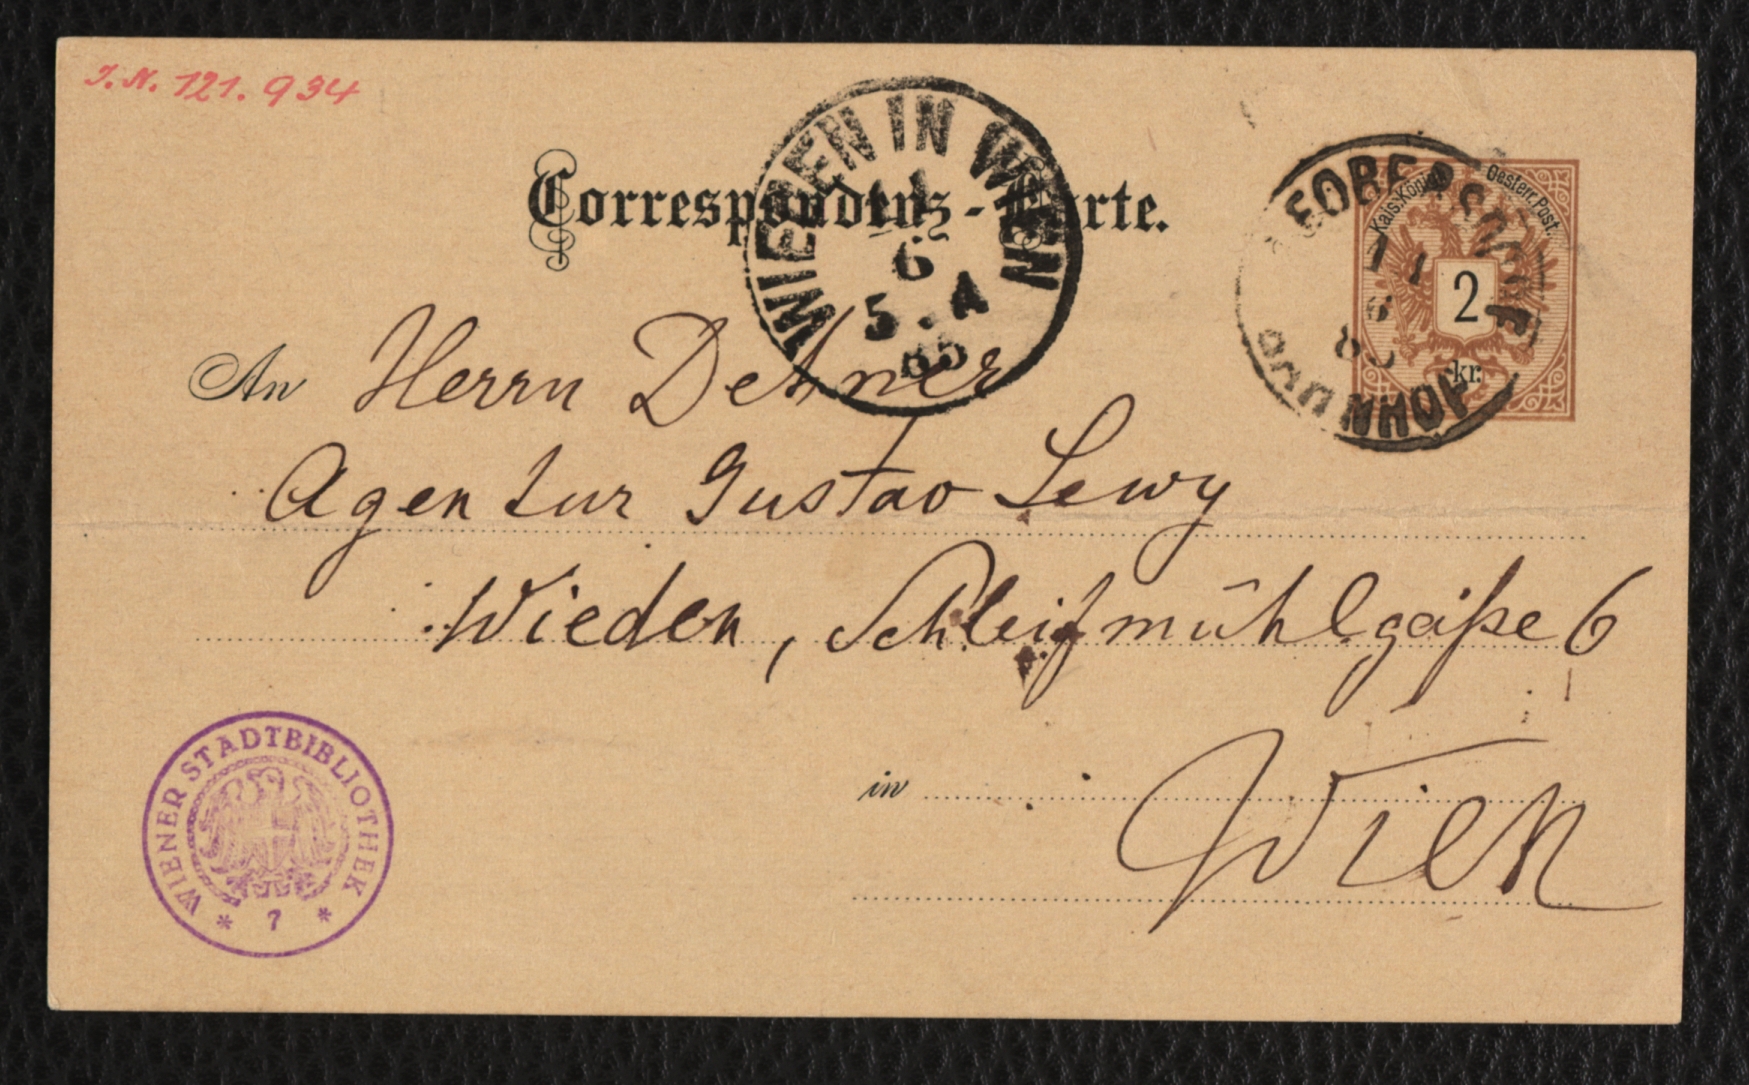 I.N. 121.934
Correspondenz-Karte.
WIEDEN IN WIEN
6
5.A
85
LEOBERSDORF
11
6
85
BAHNHOF
Kais. Königl. Oesterr. Post.
2
kr.
An Herrn Dehner
Agentur Gustav Lewy
Wieden, Schleifmühlgaße 6
in Wien
WIENER STADTBIBLIOTHEK
* 7 *